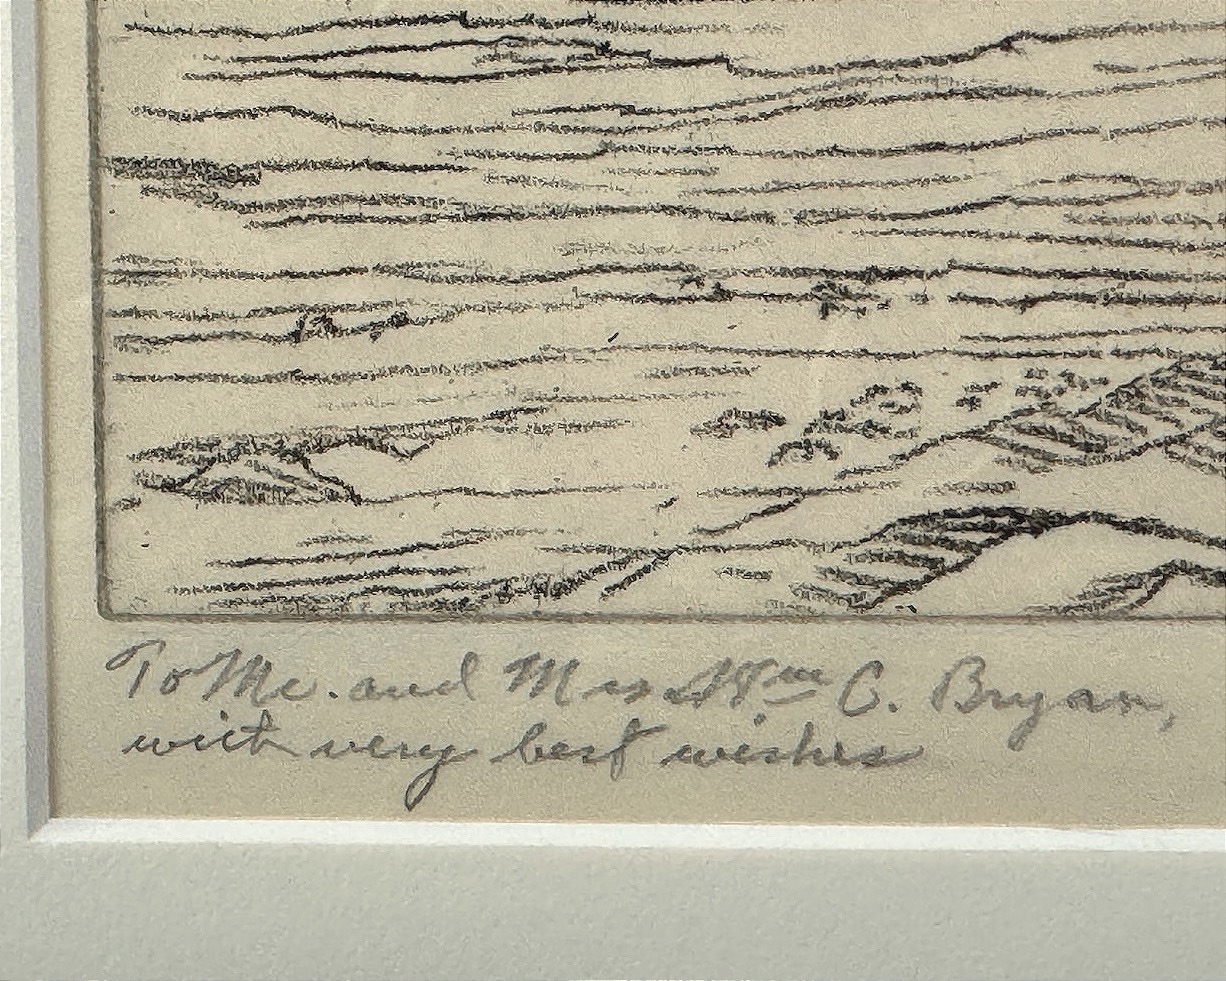 To Mr. and Mrs Wm C. Bryan,
with very best wishes